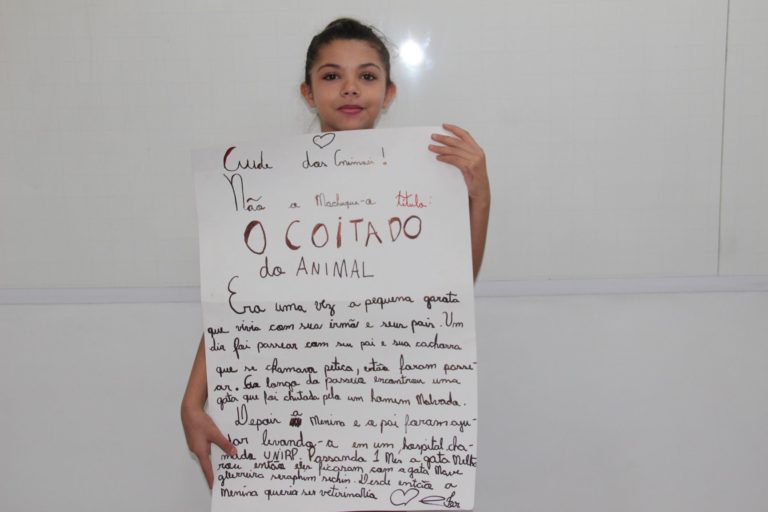 Cuide dos Animais!
Não a Machuque-a titulo:
O COITADO
do ANIMAL
Era uma vez a pequena garota
que vivia com sua irmã e seus pais. Um
dia foi passear com seu pai e sua cachorra
que se chamava petica, então foram passe-
ar. Ao longo do passeio encontrou uma
gata que foi chutada pelo um homem Malvado.
Depois a Menina e o pai foram aju-
dar levando-a em um hospital cha-
mado UNIRP. Passando 1 Mês a gata Melho
rou então eles ficaram com a gata
guerreira seraphim Desde então a
Menina queria ser veterinaria